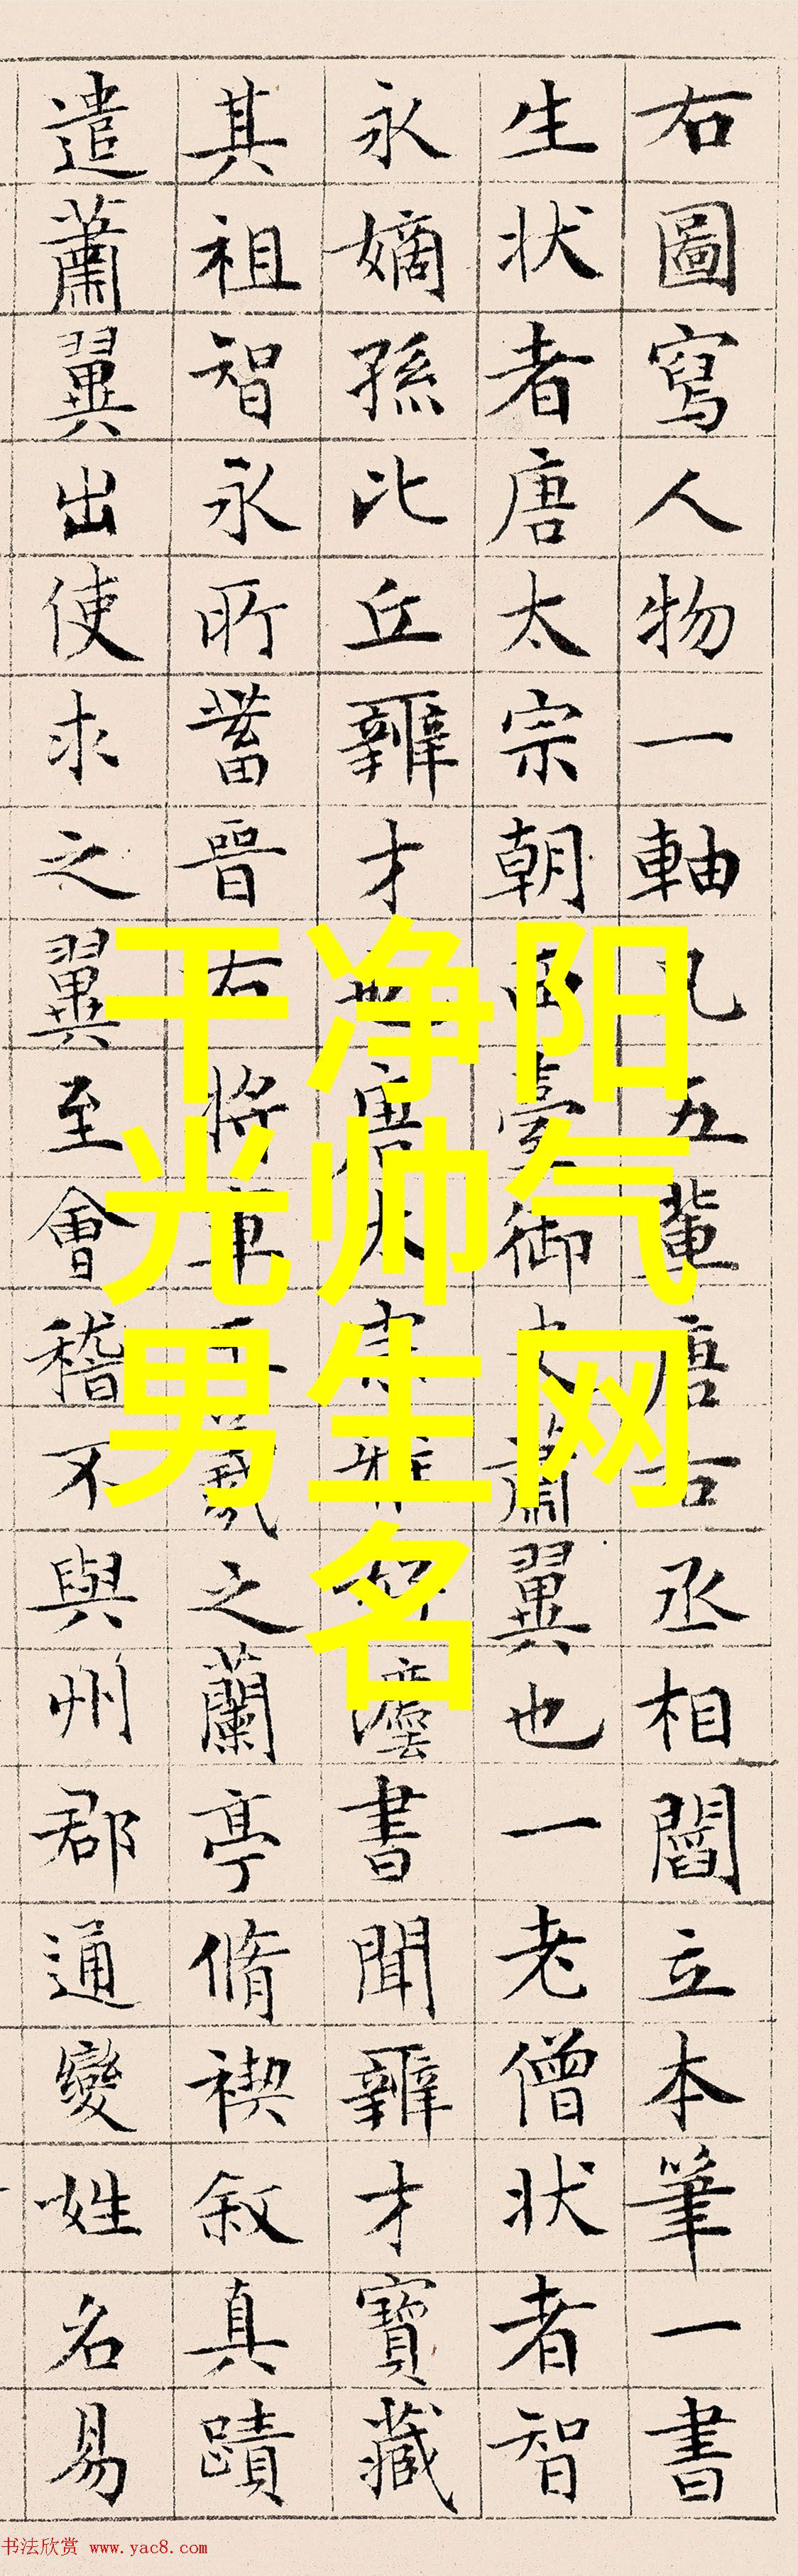 右圖寫人物一軸凡五輩唐右丞相閻立本筆一書
生状者唐太宗朝西臺御史蕭翼也一老僧状者智
永嫡孫比丘辯才也唐太宗雅好灋書聞辯才寶藏
其祖智永所蓄晉右將軍王羲之蘭亭脩禊叙真蹟
遣蕭翼出使求之翼至會稽不與州郡通變姓名易
干净阳
光帅气
男生网
名
书法欣赏 www.yac8.com